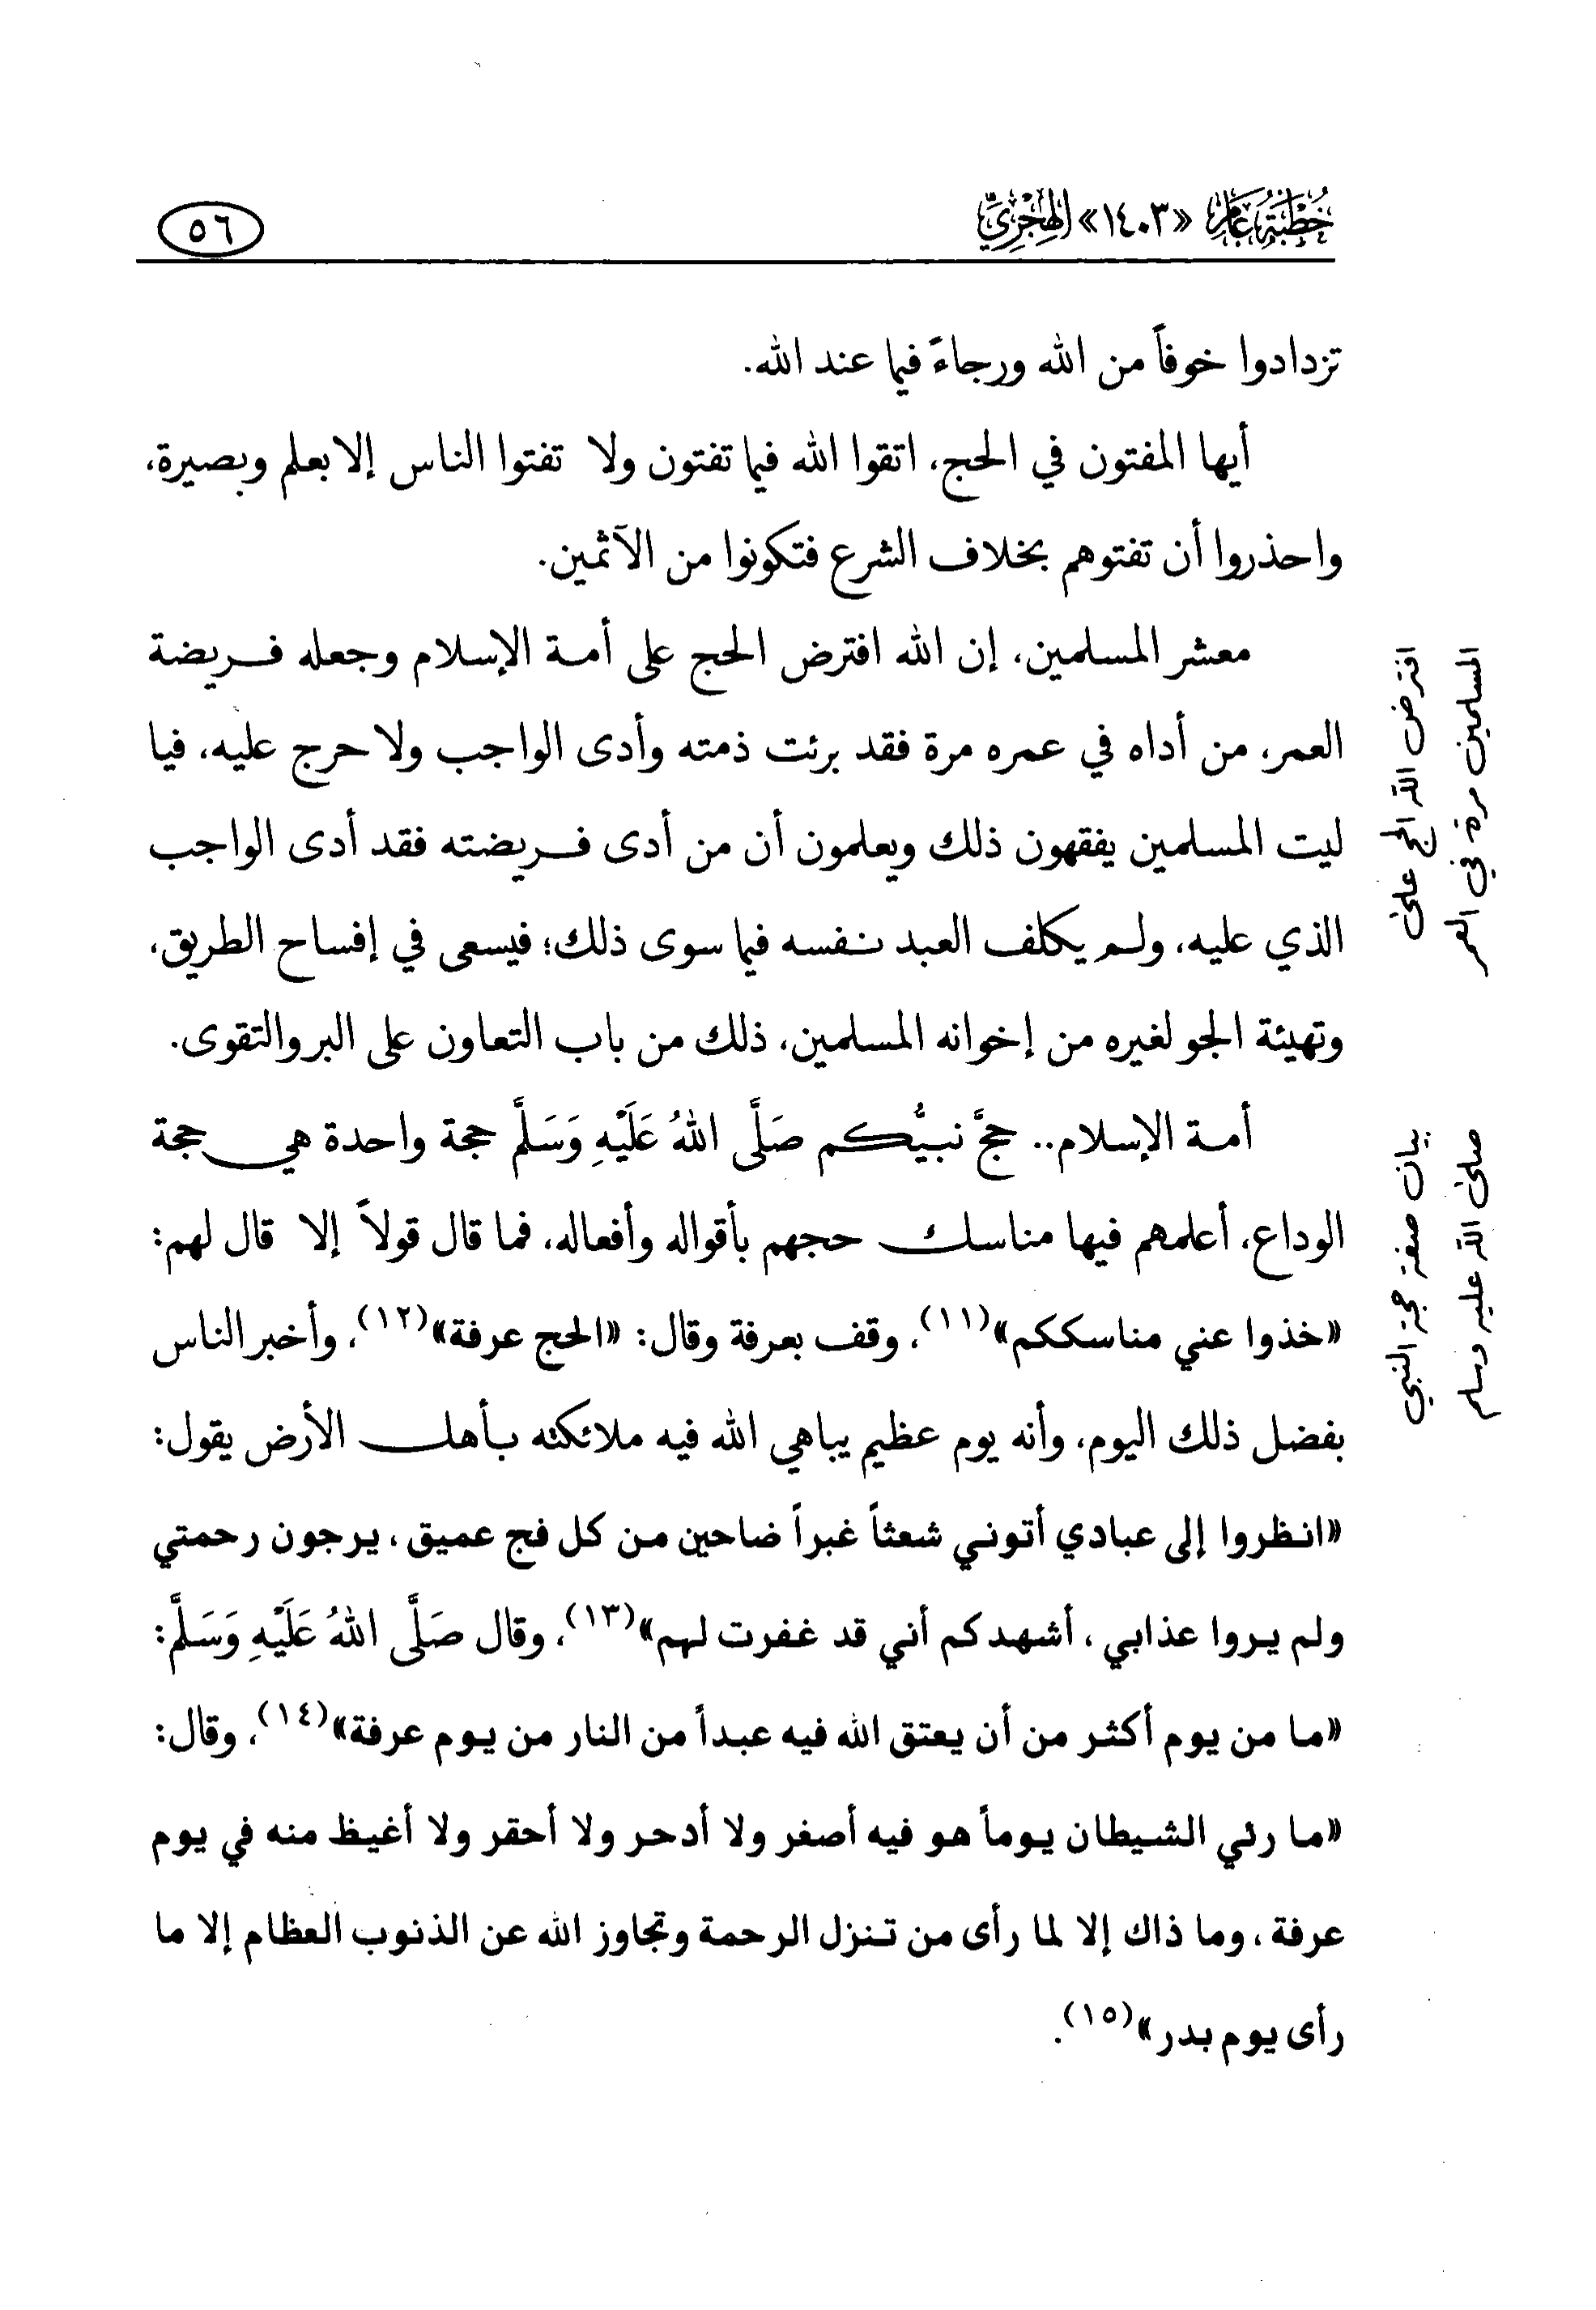 خُطْبَةُ عَامِ «١٤٠٣» الهِجْرِيِّ
٥٦
تزدادوا خوفاً من الله ورجاءً فيما عند الله.
أيها المفتون في الحج، اتقوا الله فيما تفتون ولا تفتوا الناس إلا بعلم وبصيرة،
واحذروا أن تفتوهم بخلاف الشرع فتكونوا من الآثمين.
معشر المسلمين، إن الله افترض الحج على أمة الإسلام وجعله فريضة
العمر، من أداه في عمره مرة فقد برئت ذمته وأدى الواجب ولا حرج عليه، فيا
ليت المسلمين يفقهون ذلك ويعلمون أن من أدى فريضته فقد أدى الواجب
الذي عليه، ولم يكلف العبد نفسه فيما سوى ذلك؛ فيسعى في إفساح الطريق،
وتهيئة الجو لغيره من إخوانه المسلمين، ذلك من باب التعاون على البر والتقوى.
أمة الإسلام.. حجَّ نبيُّكم صَلَّى اللهُ عَلَيْهِ وَسَلَّمَ حجة واحدة هي حجة
الوداع، أعلمهم فيها مناسك حجهم بأقواله وأفعاله، فما قال قولاً إلا قال لهم:
«خذوا عني مناسككم»(١١)، وقف بعرفة وقال: «الحج عرفة»(١٢)، وأخبر الناس
بفضل ذلك اليوم، وأنه يوم عظيم يباهي الله فيه ملائكته بأهل الأرض يقول:
«انظروا إلى عبادي أتوني شعثاً غبراً ضاحين من كل فج عميق، يرجون رحمتي
ولم يروا عذابي، أشهدكم أني قد غفرت لهم»(١٣)، وقال صَلَّى اللهُ عَلَيْهِ وَسَلَّمَ:
«ما من يوم أكثر من أن يعتق الله فيه عبداً من النار من يوم عرفة»(١٤)، وقال:
«ما رئي الشيطان يوماً هو فيه أصغر ولا أدحر ولا أحقر ولا أغيظ منه في يوم
عرفة، وما ذاك إلا لما رأى من تنزل الرحمة وتجاوز الله عن الذنوب العظام إلا ما
رأى يوم بدر»(١٥).
افترض الله الحج على
المسلمين مرة في العمر
بيان صفة حجة النبي
صلى الله عليه وسلم